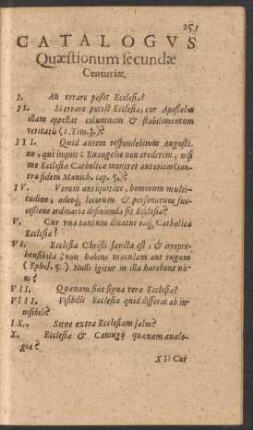 251
CATALOGVS
Quæstionum secundæ
Centuriæ.
I. An errare possit Ecclesia?
II. Si errare potest Ecclesia, cur Apostolus
illam appellat columnam & stabilimentum
veritatis (1. Tim. 3.)?
III. Quid autem respondebitur Augusti-
no, qui inquit: Euangelio non crederem, nisi
me Ecclesiæ Catholicæ moneret autoritas (con-
tra fidem Manich. cap. 5.)?
IV. Verum antiquitate, hominum multi-
tudine, adeoq; locorum & personarum suc-
cessione ordinaria definienda sit Ecclesia?
V. Cur vna tantum dicatur eaq; Catholica
Ecclesia?
VI. Ecclesia Christi sancta est, & irrepre-
hensibilis: non habens maculam aut rugam
(Ephes. 5.) Nulli igitur in illa hærebunt næ-
ui?
VII. Quænam sint signa veræ Ecclesiæ?
VIII. Visibilis Ecclesia quid differat ab in-
uisibili?
IX. Sitne extra Ecclesiam salus?
X. Ecclesiæ & Coniugij quænam analo-
gia?
XI. Cur